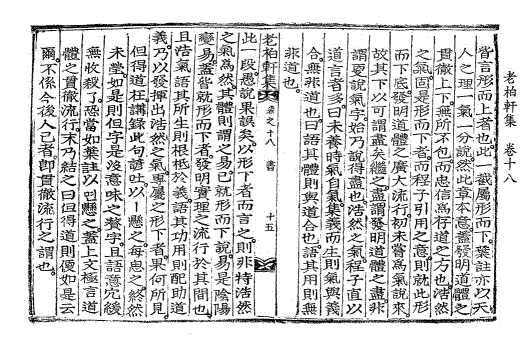 老柏軒集 卷十八
皆言形而上者也此一截屬形而下葉註亦以天
人之理一氣一分說然此章本意蓋發明道體之
貫徹上下無所不包而忠信爲存道之方也浩然
之氣固是形而下者而程子引用之意則就此形
而下底發明道體之廣大流行初未嘗爲氣說來
故其下以可謂盡矣繼之盡謂發明道體之盡非
謂更說氣字始乃說得盡也浩然之氣程子直以
道言者多曰未養時氣自氣集義而生則氣與義
合無非道也曰語其體則與道合也語其用則無
非道也
老柏軒集 卷之十八 書 十五
此一段愚說果誤矣以形下者而言之則非特浩然
之氣爲然其體則謂之易已就形而下說易是陰陽
變易蓋皆就形而下者發明實理之流行於其間也
且浩氣語其所生則根柢於義語其功用則配助道
義乃以發揮出浩然之氣專屬之形下者果何所見
但得道在講錄此句諺吐以ㅣ懸之每思之終然
未瑩如是則但字是沒意味之贅字且語意緩
無收殺了恐當如葉註以인懸之蓋上文極言道
體之貫徹流行末乃結之曰但得道則便如是云
爾不係今後人己者卽貫徹流行之謂也